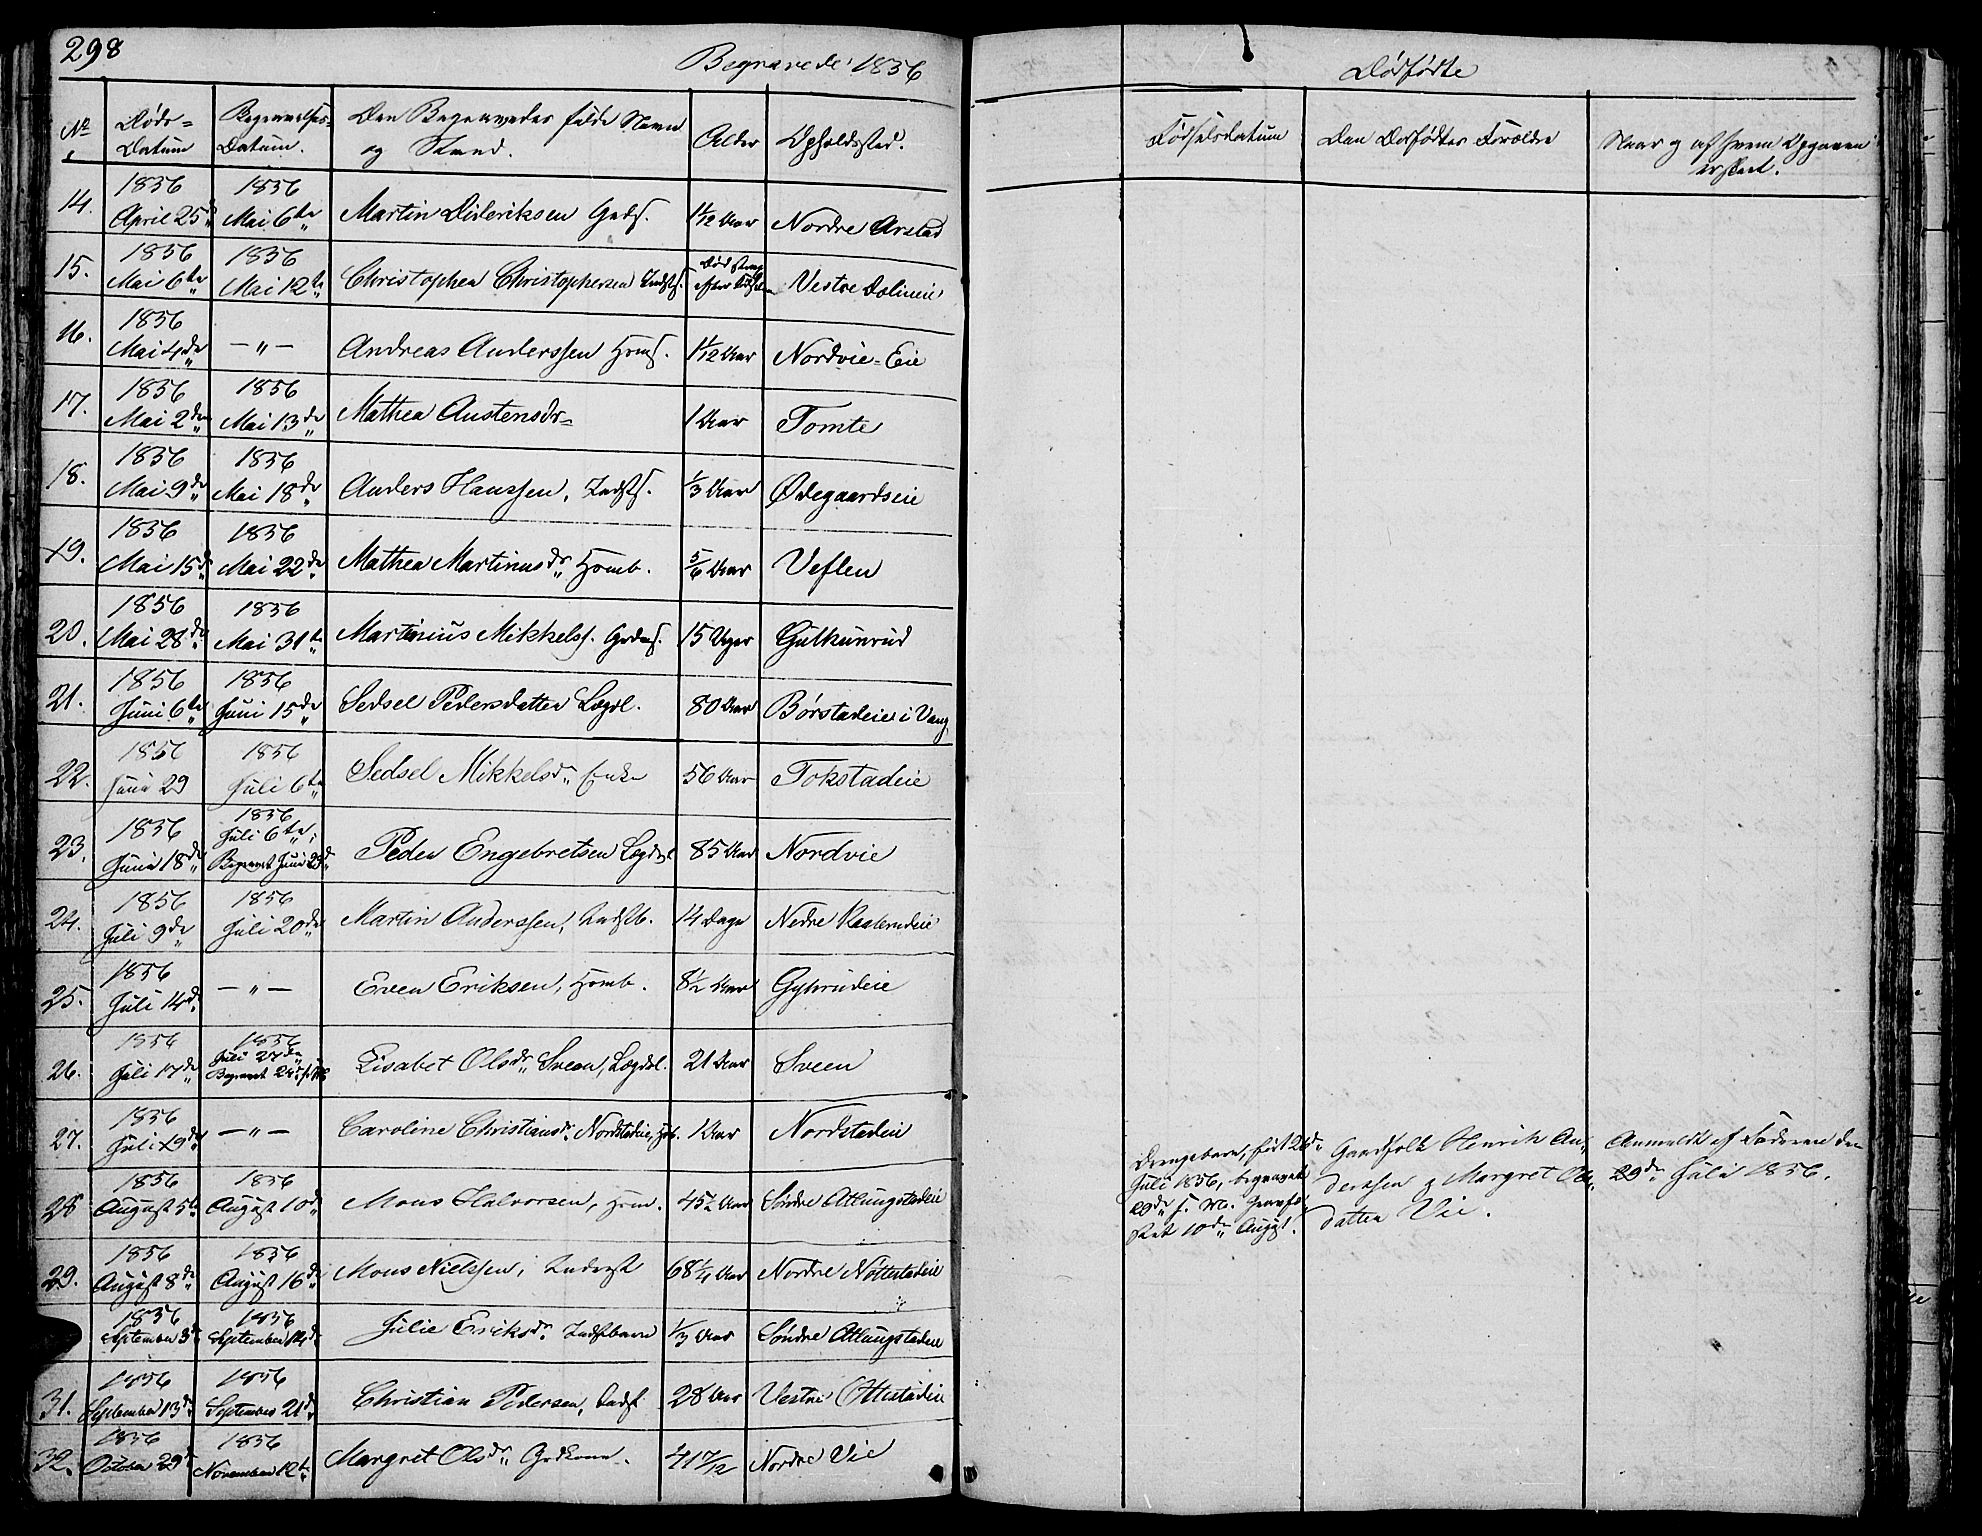 298
Begravede 1856
Dødfødte
No
Døds-
Datum
Begravelses-
Datum.
Den Begravedes fulde Navn
og Stand.
Alder
Opholdssted.
Fødselsdatum
Den Dødfødtes Forældre
Naar og af hvem Opgaven
er skeet.
14.
1856
April 25de
1856
Mai 6te
Martin Dideriksen
1 1/12 Aar
Nordre Arstad
15.
1856
Mai 6te
1856
Mai 12te
Christopher Christophersen Indsts.
Død strax
efter Fødselen
Vestre Dolineie
16.
1856
Mai 4de
— " —
Andreas Anderssen Hms.
1 1/12 Aar
Nordvie-Eie
17.
1856
Mai 2den
1856
Mai 13de
Mathea Austensdr=
1 Aar
Tomte
18.
1856
Mai 9de
1856
Mai 18de
Anders Hanssen, Indsts.
1/3 Aar
Ødegaardseie
19.
1856
Mai 15de
1856
Mai 22de
Mathea Martinusdr Hmb.
5/6 Aar
Veflen
20.
1856
Mai 28de
1856
Mai 31te
Martinius Mikkels. Grdms.
15 Uger
Gulkunrud
21.
1856
Juni 6te
1856
Juni 15de
Sedsel Pedersdatter Lægdl.
80 Aar
Børstadeie i Vang
22.
1856
Juni 29
1856
Juli 6te
Sedsel Mikkelsdr Enke
56 Aar
Tokstadeie
23.
1856
Juni 18de
1856
Juli 6te,
Begravet Juni 23de
Peder Engebretsen Lægdl.
85 Aar
Nordvie
24.
1856
Juli 9de
1856
Juli 20de
Martin Anderssen, Indstb.
14 Dage
Nedre
25.
1856
Juli 14de
— " —
Even Eriksen, Hmb.
8 1/2 Aar
Gyhrudeie
26.
1856
Juli 17de
1856
Juli 27de
Begravet
Lisabet Olsdr Sveen, Lægdl.
21 Aar
Sveen
27.
1856
Juli 19de
— " —
Caroline Christiansdr Nordstadeie, Hb.
1 Aar
Nordstadeie
Drengebarn, født 26de
Juli 1856, begravet
29de s. M. Jordfæ-
stet 10de Augst.
Gaardfolk Henrik An-
derssen og Margret Ols-
datter Vie.
Anmeldt af Faderen den
29de Juli 1856.
28
1856
August 5te
1856
August 10de
Mons Halvorsen, Hmd.
45 1/2 Aar
Søndre Atlungstadeie
29.
1856
August 8de
1856
August 16de
Mons Nielssen, Inderst
68 1/4 Aar
Nordre Nøttestadeie
1856
September 3de
1856
September 14de
Julie Eriksdr. Indstbarn
1/3 Aar
Søndre Atlungstadeie
31.
1856
September 13de
1856
September 21de
Christian Pedersen, Indst
28 Aar
Vestre Ottestadeie
32.
1856
October 29de
1856
November 12te
Margret Olsdr Grdkone.
41 7/12
Nordre Vie